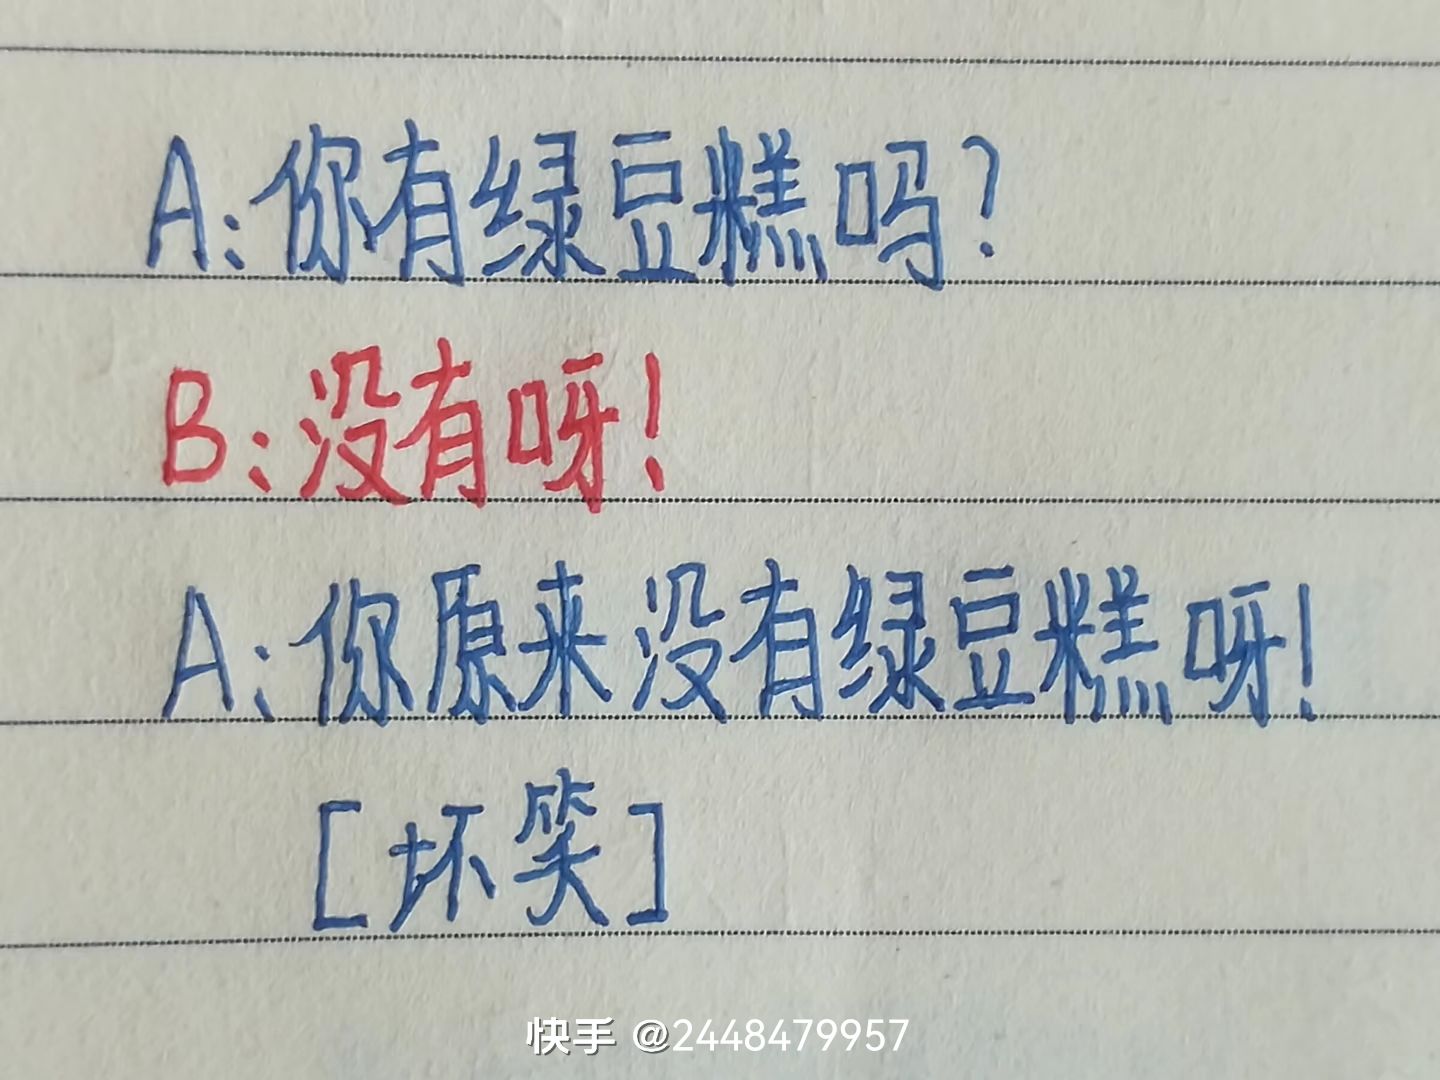 A:你有绿豆糕吗?
B:没有呀!
A:你原来没有绿豆糕呀!
[坏笑]
快手 @2448479957